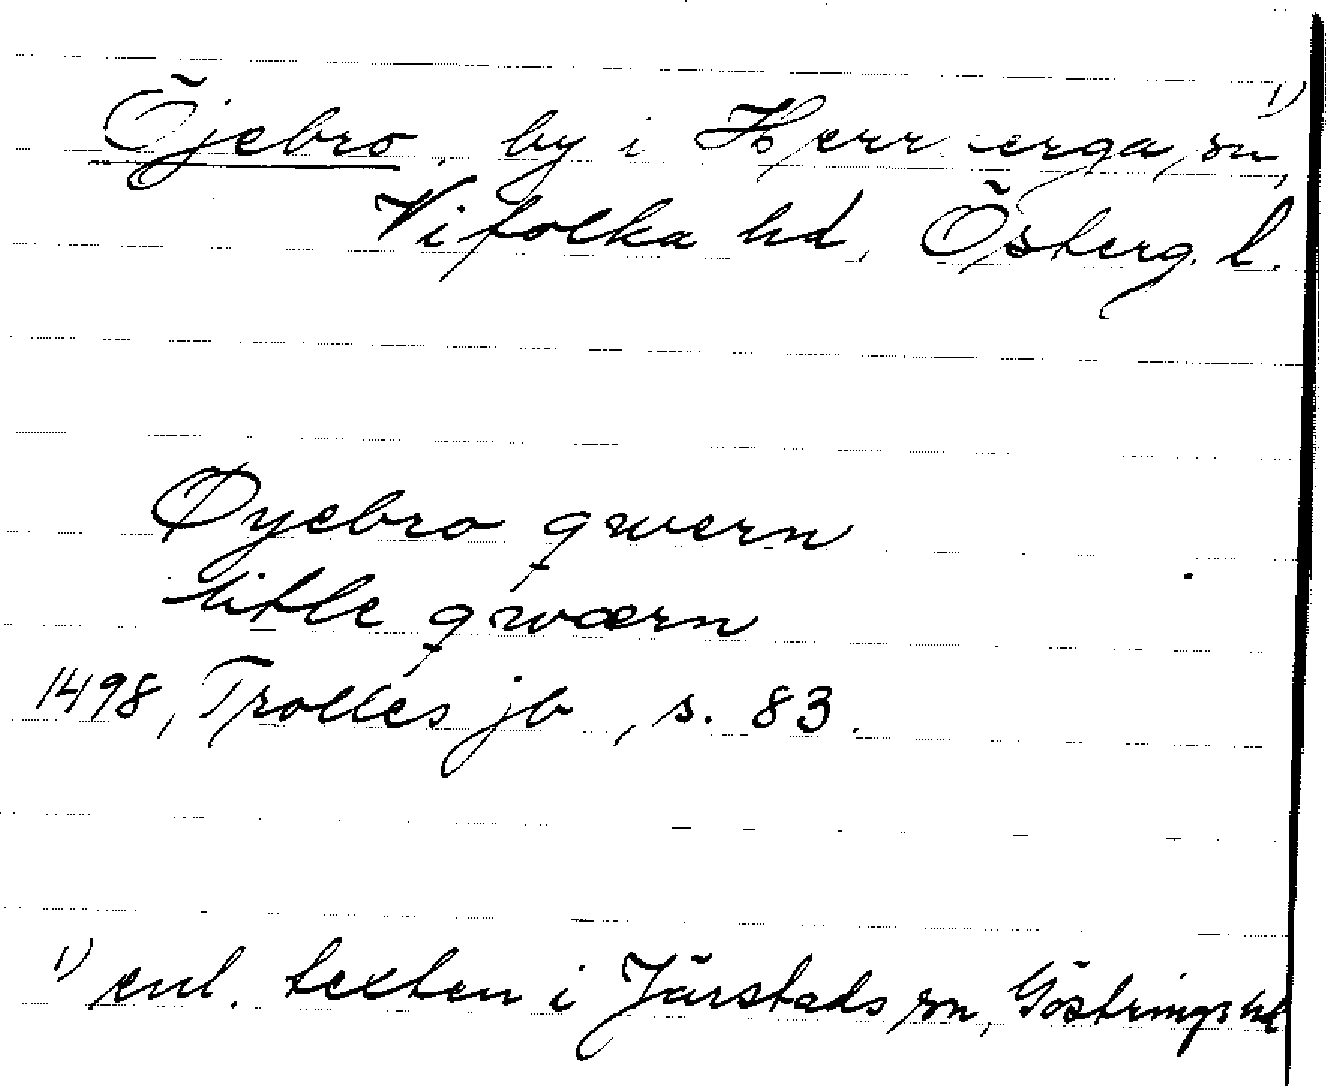 Öjebro, by i Herrberga sn, ¹⁾
Vifolka hd, Österg. l.
Øyebro qwern
litle qwærn
1498, Trolles jb, s. 83.
¹⁾ enl. texten i Järstads sn, Göstrings hd